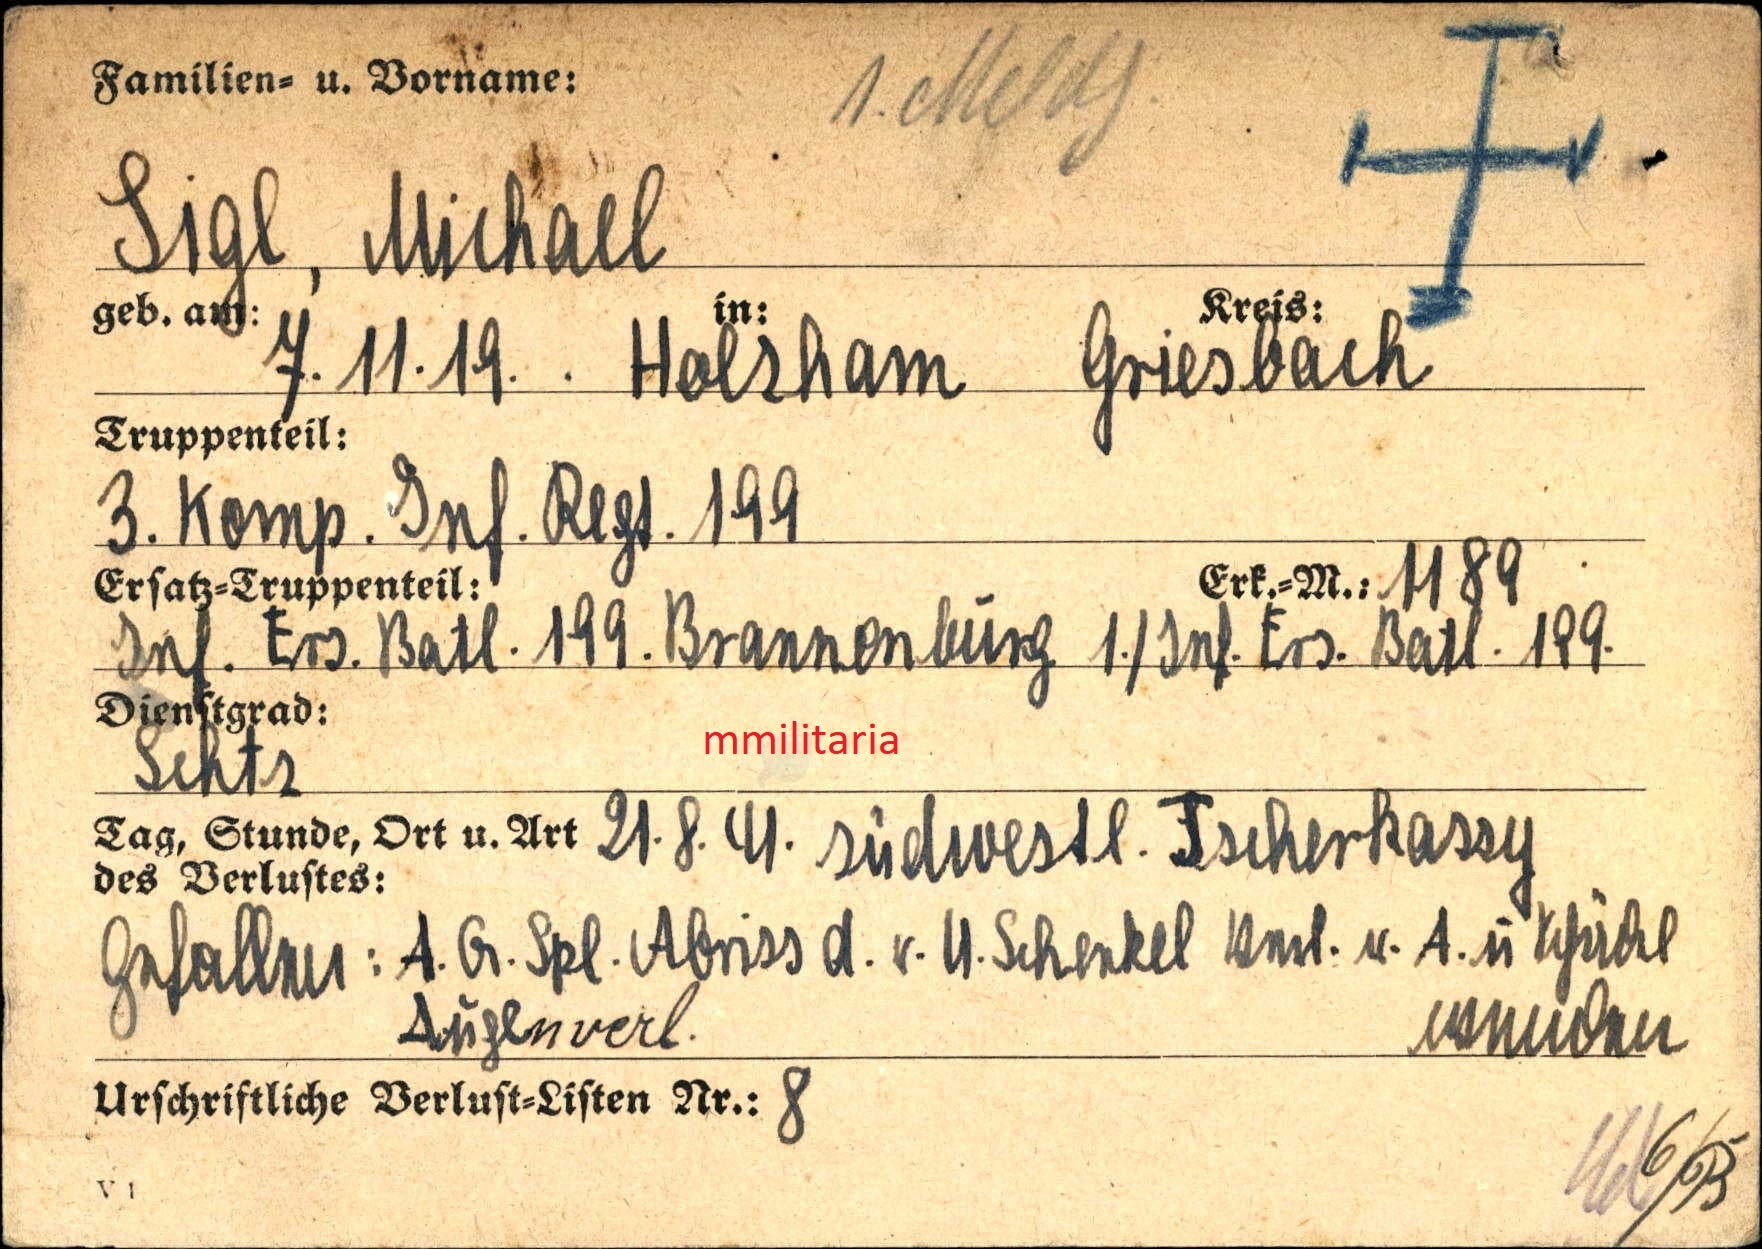 Familien- u. Vorname:
1. Meldg.
Sigl, Michael
geb. am: in: Kreis:
7. 11. 19. Holzham Griesbach
Truppenteil:
3. Komp. Inf. Regt. 199
Ersatz-Truppenteil: Erk.-M.: 1189
Inf. Ers. Batl. 199. Brannenburg 1./Inf. Ers. Batl. 199.
Dienstgrad:
Schtz
mmilitaria
Tag, Stunde, Ort u. Art 21. 8. 41. südwestl. Tscherkassy
des Verlustes:
Gefallen: A. Gr. Spl. Abriss d. r. U. Schenkel Verl. r. A. u Schädel
Augenverl. wunden
Urschriftliche Verlust-Listen Nr.: 8
V 1